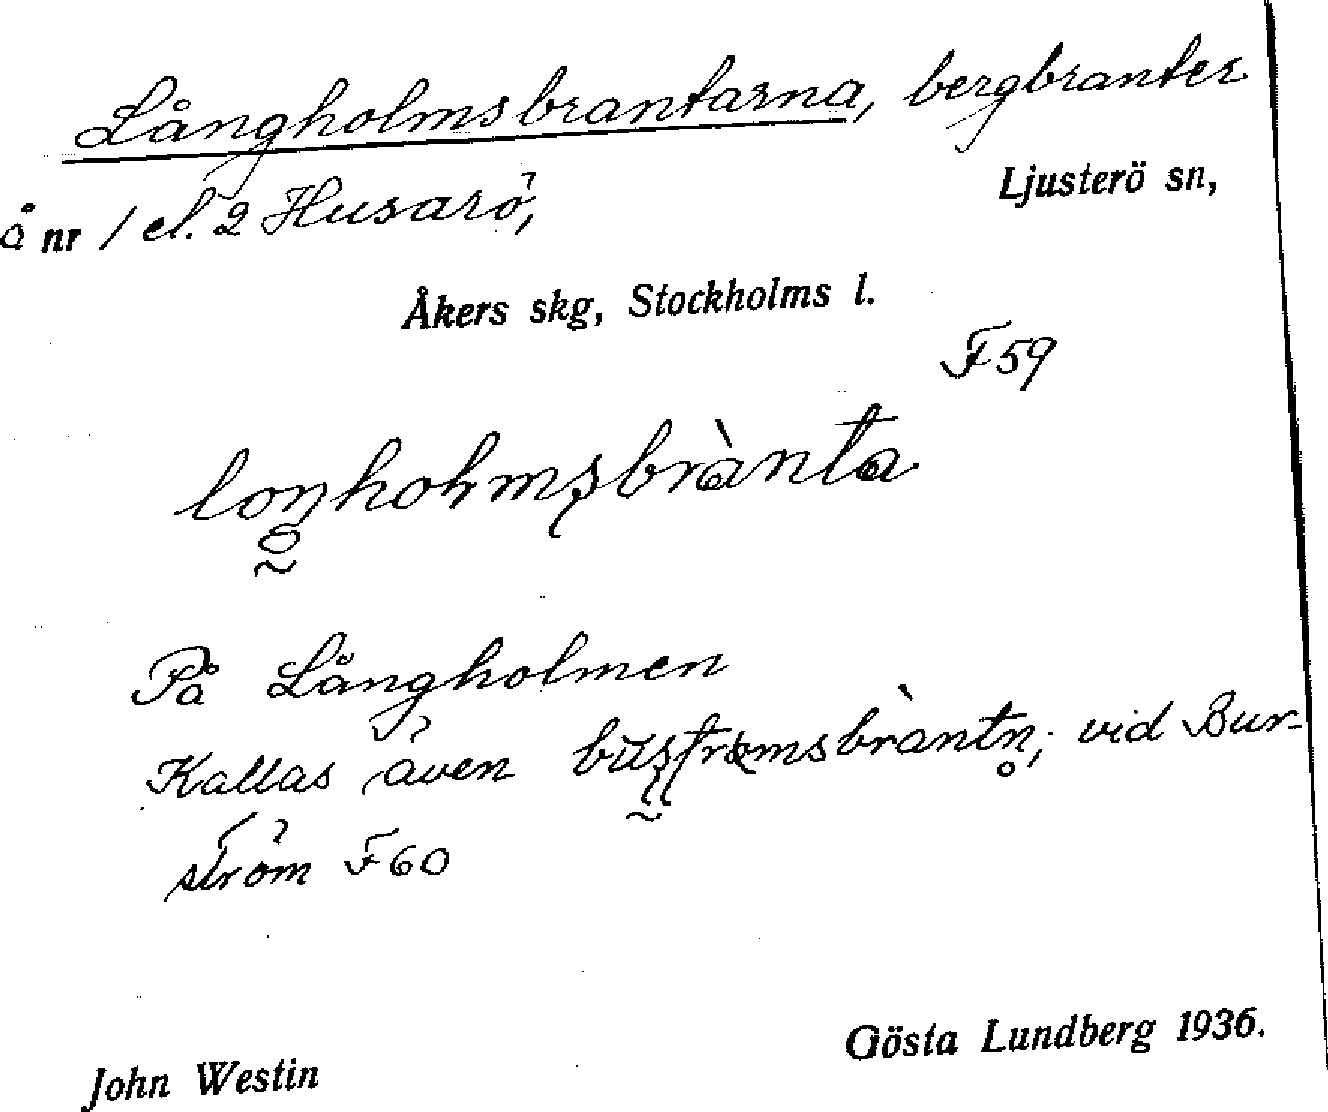 Långholmsbrantarna, bergbranter
å nr 1 el. 2 Husarö,
Ljusterö sn,
Åkers skg, Stockholms l.
F 59
På Långholmen
Kallas även vid Bur-
ström F 60
Gösta Lundberg 1936.
John Westin